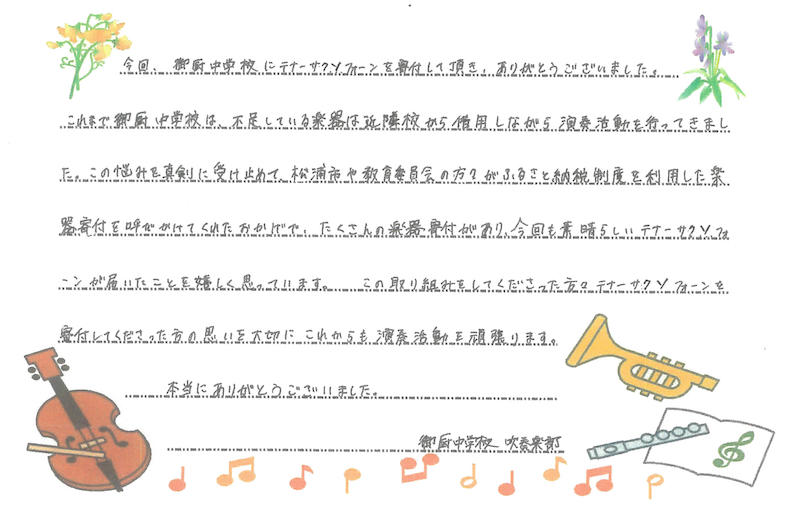 今回、御厨中学校にテナーサクソフォーンを寄付して頂き、ありがとうございました。
これまで御厨中学校は、不足している楽器は近隣校から借用しながら演奏活動を行ってきまし
た。この悩みを真剣に受け止めて、松浦市や教育委員会の方々がふるさと納税制度を利用した楽
器寄付を呼びかけてくれたおかげで、たくさんの楽器寄付があり、今回も素晴らしいテナーサクソフォ
ーンが届いたことを嬉しく思っています。 この取り組みをしてくださった方々テナーサクソフォーンを
寄付してくださった方の思いを大切にこれからも演奏活動を頑張ります。
本当にありがとうございました。
御厨中学校 吹奏楽部